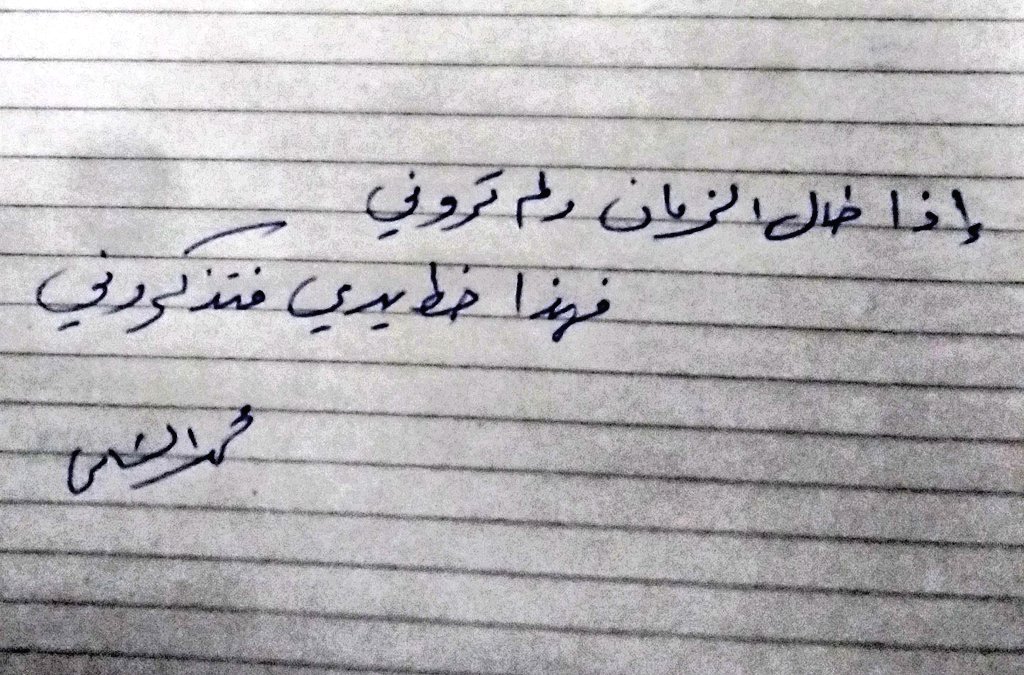 إذا طال الزمان ولم تروني
فهذا خط يدي فتذكروني
محمد